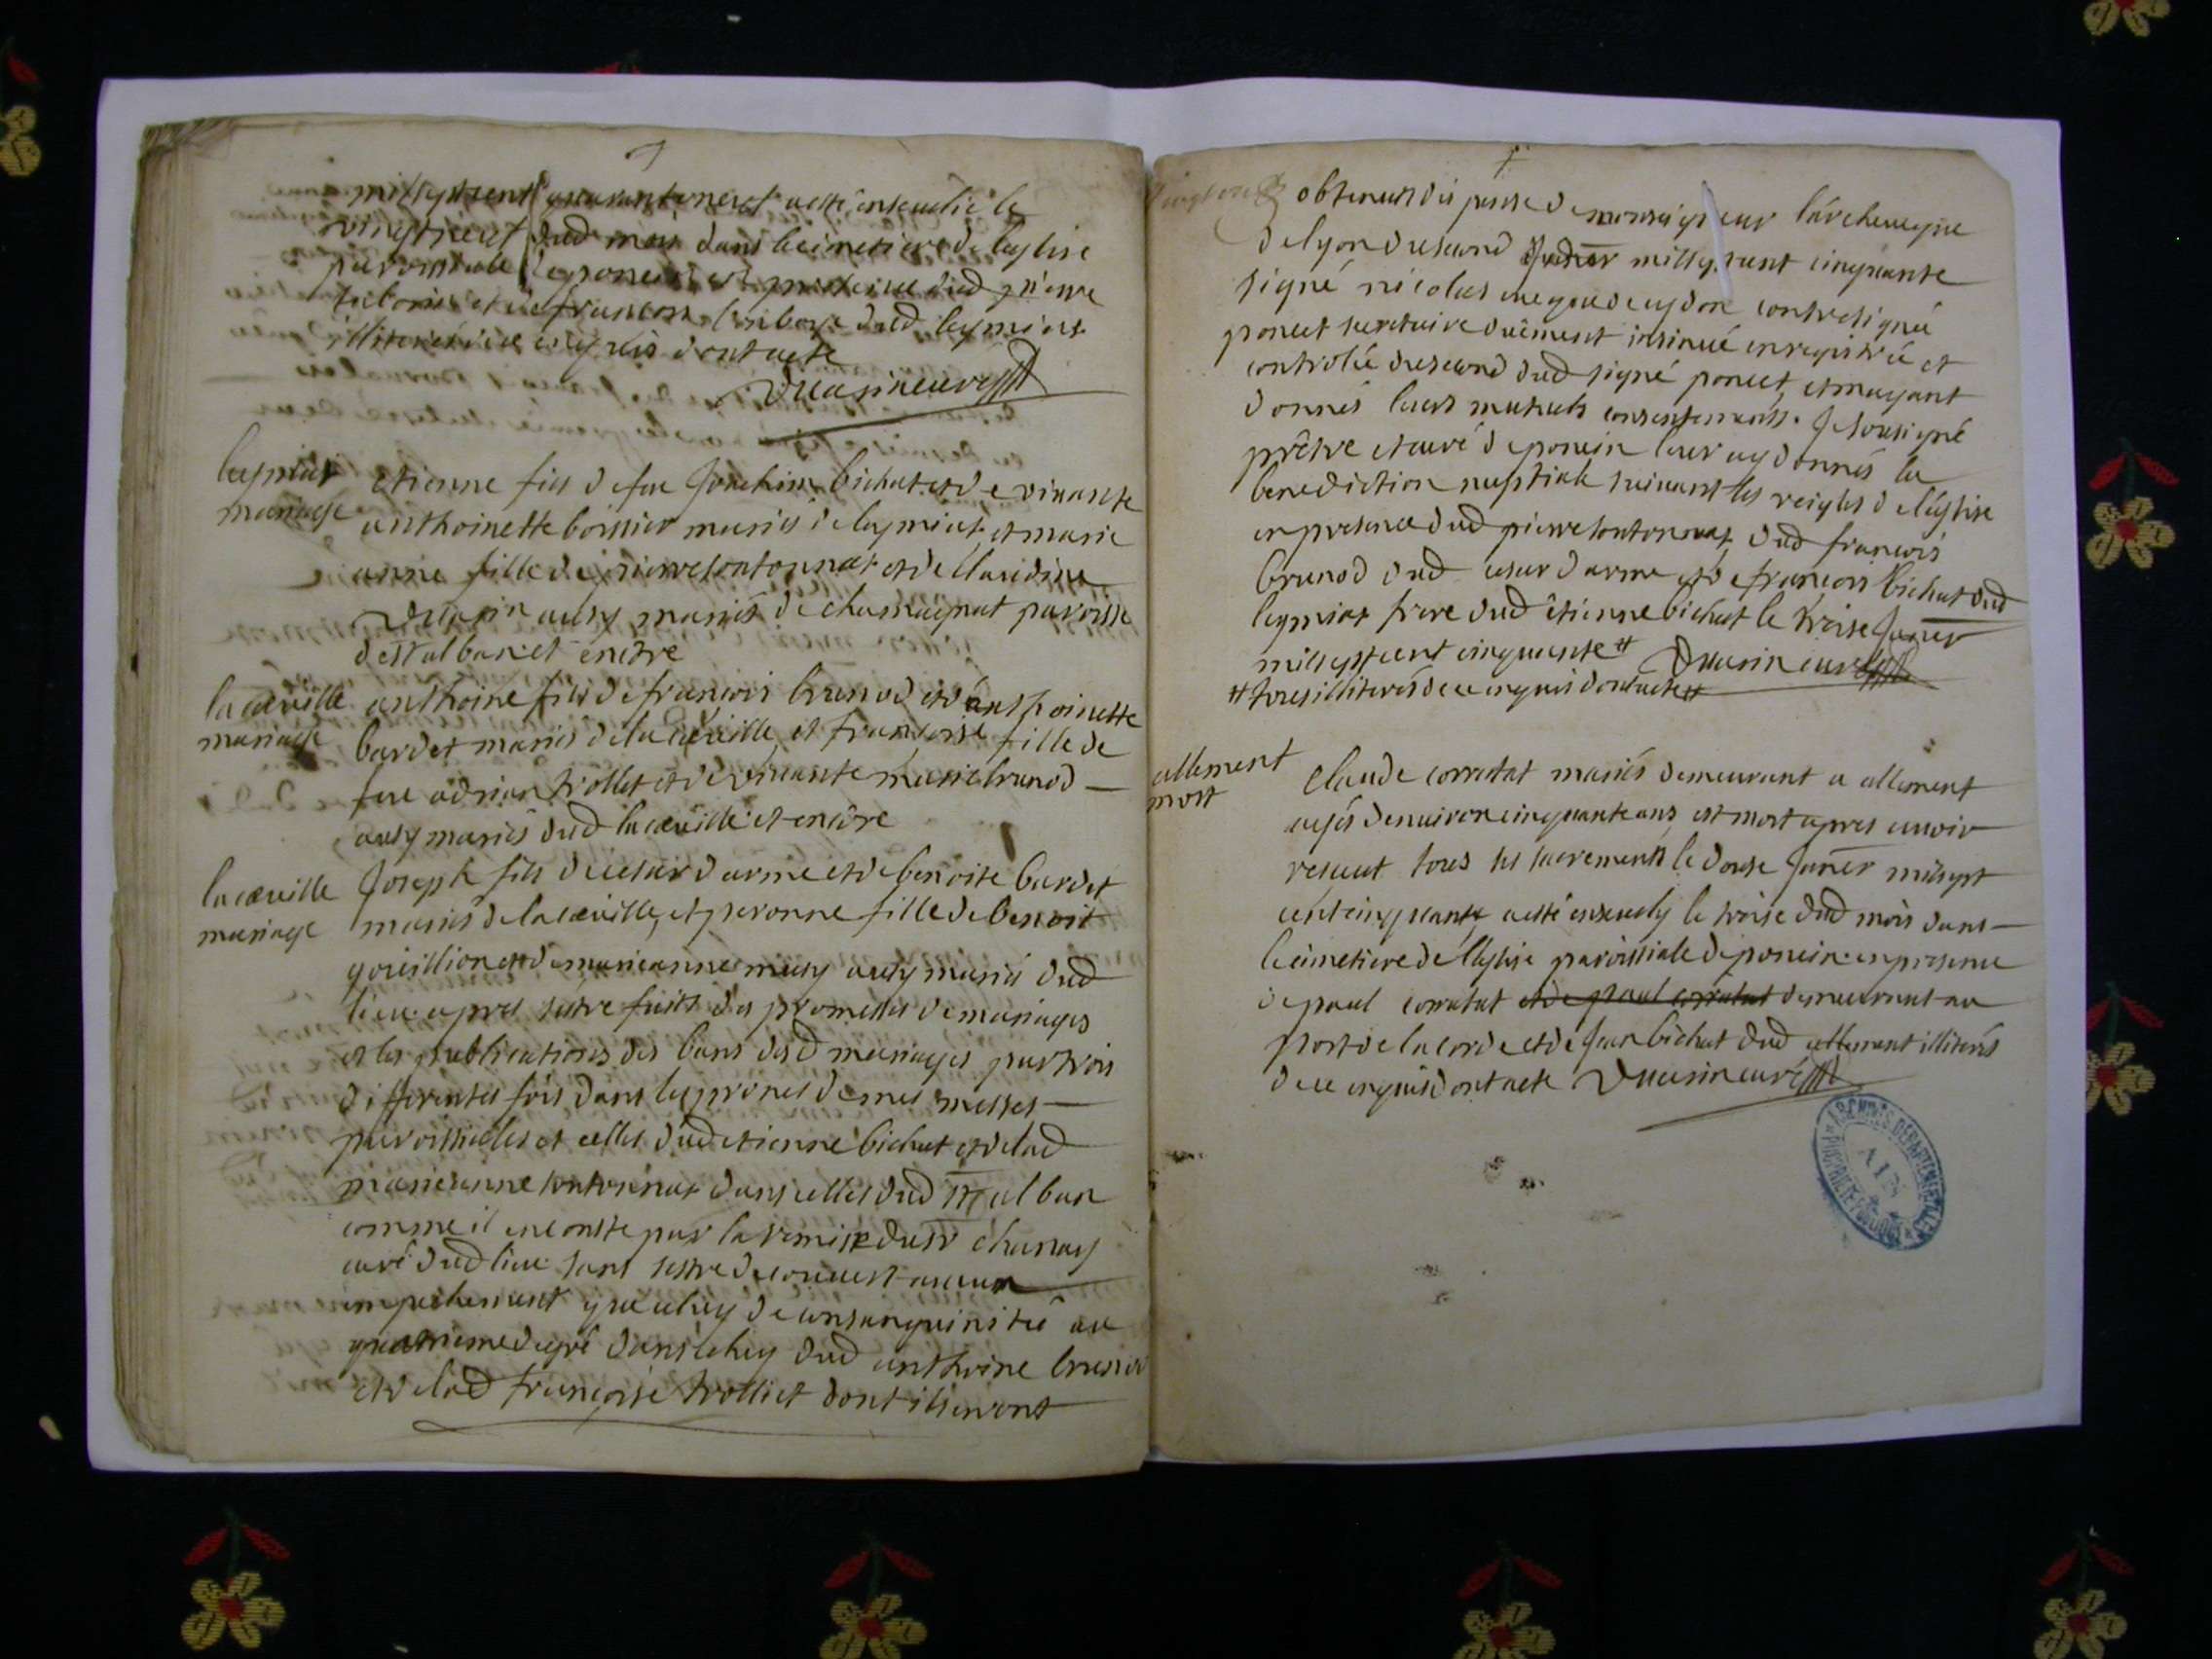 millseptcent quaranteneuf aesté enseuelie le
vingtneuf dud mois dans lecimetiere de leglise
paroissiale de poncin en presence dud pierre
et de francois dud leymiat
illiterés de ce enquis dont acte
Duasin curé
leymiat
mariage
etienne fils de feu Joachim bichat et de vivante
anthoinette boissier mariés de leymiat, et marie
anne fille de pierre tontonnat et de Claudine
Duasin ausy mariés de chamagnat paroisse
de st alban et encore
la cueille
mariage
anthoine fils de francois brunod et de anthoinette
bardet mariés de la cueille, et francoise fille de
feu adrian trollet et de vivante marie brunod
ausy mariés dud la cueille et encôre
la cueille
mariage
Joseph fils de cesar darme et de benoite bardet
mariés de la cueille, et peronne fille de benoit
gouillion et de marieanne miery ausy mariés dud
lieu apres sestre faitt des promesses de mariages
et les publications des bans desd mariages par trois
differentes fois dans les prones de mes messes
paroissiales et celles dud etienne bichat et de lad
marieanne tontonnat dans celles dud st alban
comme il me conste par la remise du sr chanay
curé dud lieu sans sestre decouvert aucun
empechement que celuy de consanguinité au
quatrieme degré dans celuy dud anthoine brunod
et de lad francoise trolliet dont ils mont
obtenus dispense de monseigneur lárcheueque
de lyon du second Janer millseptcent cinquante
signé nicolas nauarre contresigné
poncet secretaire duêment insinué enregistrée et
controlée du second dud signé poncet, et mayant
donnés leurs mutuels consentements. Je sousigné
prêtre et curé de poncin leur ay donnés la
benediction nuptiale suivant les reigles de leglise
en presence dud pierre tontonnat, dud francois
brunod dud cesar darme et de francois bichat dud
leymiat frere dud êtienne bichat le treise Janer
millseptcent cinquante # Duasin curé
# tous illiterés de ce enquis dont acte #
allement
mort
Claude corratat mariés demeurant a allement
agés denuiron cinquante ans, est mort apres auoir
receut tous les sacrements le douse Janer millsept
cent cinquante, aesté enseuely le treise dud mois dans
le cimetiere de leglise paroissiale de poncin en presence
de paul corratat et de paul corratat demeurant au
port de la corde et de Jean bichat dud allement illiterés
de ce enquis dont acte Duasin curé
ARCHIVES DEPARTEMENTALES
AIN